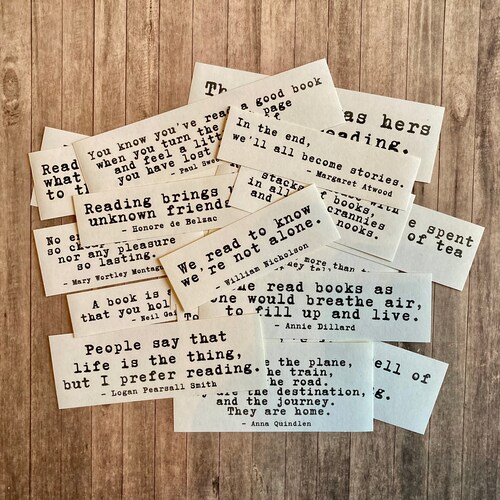 Th as hers
reading.
You know you've read a good book
when you turn the page
and feel a litt
you have lost
- Paul Swe
In the end,
we'll all become stories.
- Margaret Atwood
Read
what
to th
stacks with
in all of books,
crannies
nooks.
Reading brings
unknown friend
- Honore de Belzac
e spent
of tea
No en
so cheap
nor any pleasure
so lasting.
- Mary Wortley Montag
We read to know
we're not alone.
- William Nicholson
more than t
they tell
A book is
that you hol
- Neil Gai
To
me read books as
one would breathe air,
to fill up and live.
- Annie Dillard
People say that
life is the thing,
but I prefer reading.
- Logan Pearsall Smith
e the plane,
he train,
he road.
y are the destination,
and the journey.
They are home.
- Anna Quindlen
ell of
g.